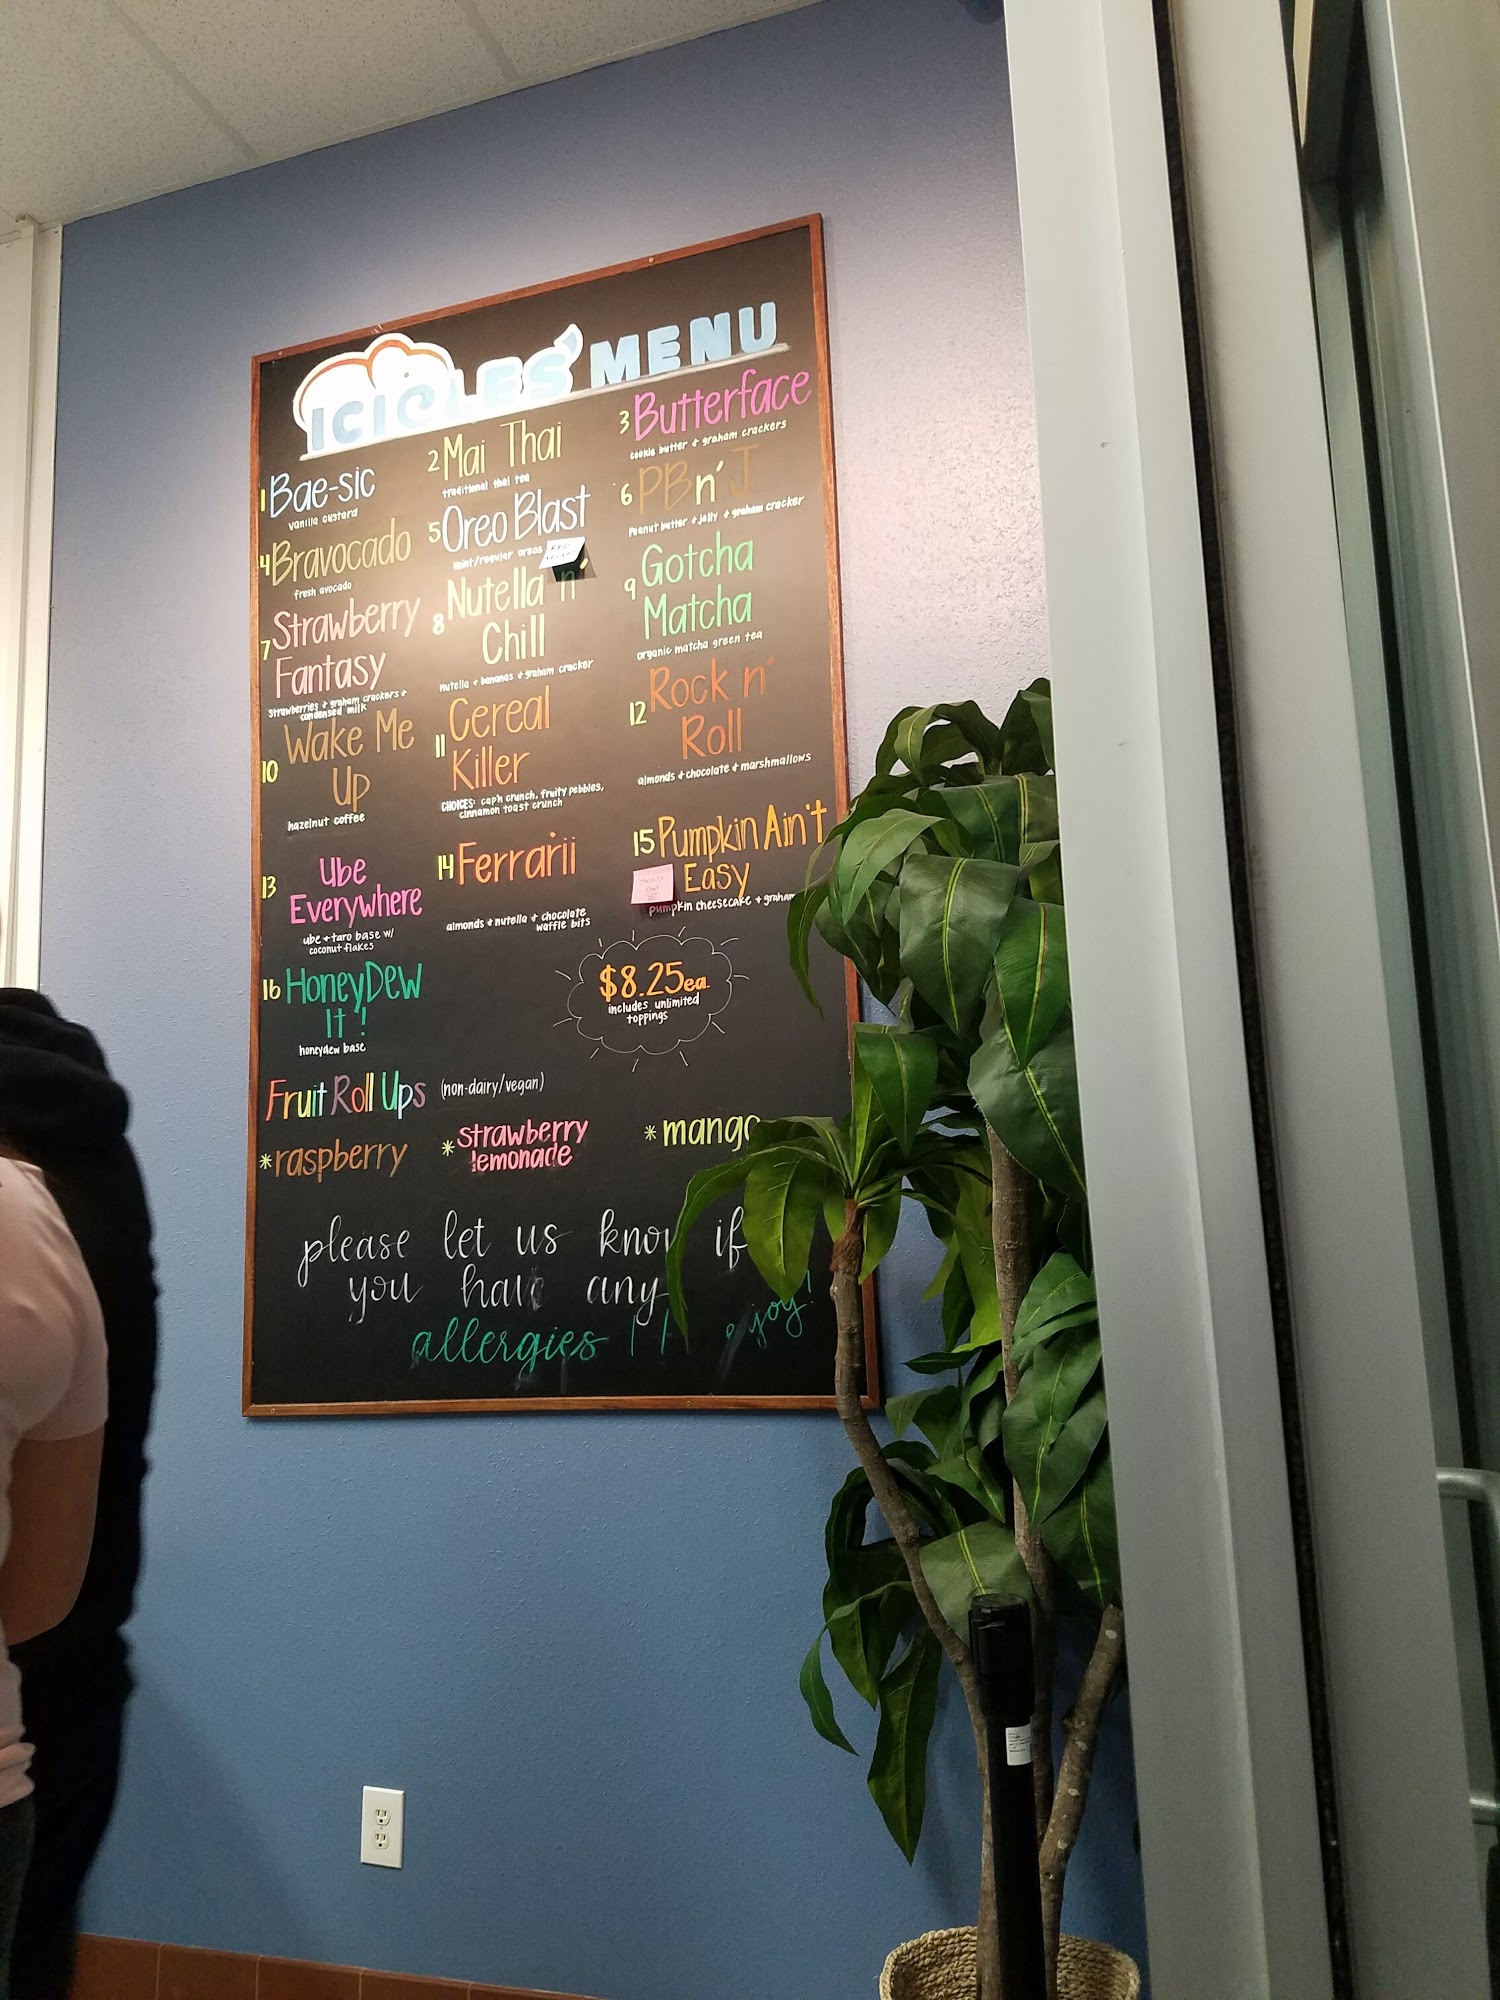 ICICLES' MENU
1 Bae-sic
vanilla custard
2 Mai Thai
traditional thai tea
3 Butterface
cookie butter + graham crackers
4 Bravocado
fresh avocado
5 Oreo Blast
mint/regular oreos
6 PB n' J
Peanut butter + jelly + graham cracker
7 Strawberry
Fantasy
Strawberries + graham crackers +
condensed milk
8 Nutella n'
Chill
nutella + bananas + graham cracker
9 Gotcha
Matcha
organic matcha green tea
10 Wake Me
Up
hazelnut coffee
11 Cereal
Killer
CHOICES: cap'n crunch, fruity pebbles,
cinnamon toast crunch
12 Rock n'
Roll
almonds + chocolate + marshmallows
13 Ube
Everywhere
ube + taro base w/
coconut flakes
14 Ferrarii
almonds + nutella + chocolate
waffle bits
15 Pumpkin Ain't
Easy
pumpkin cheesecake + graham
16 HoneyDew
It!
honeydew base
$8.25ea
includes unlimited
toppings
Fruit Roll Ups (non-dairy/vegan)
*raspberry
*strawberry
lemonade
*mango
please let us know if
you have any
allergies !! enjoy!